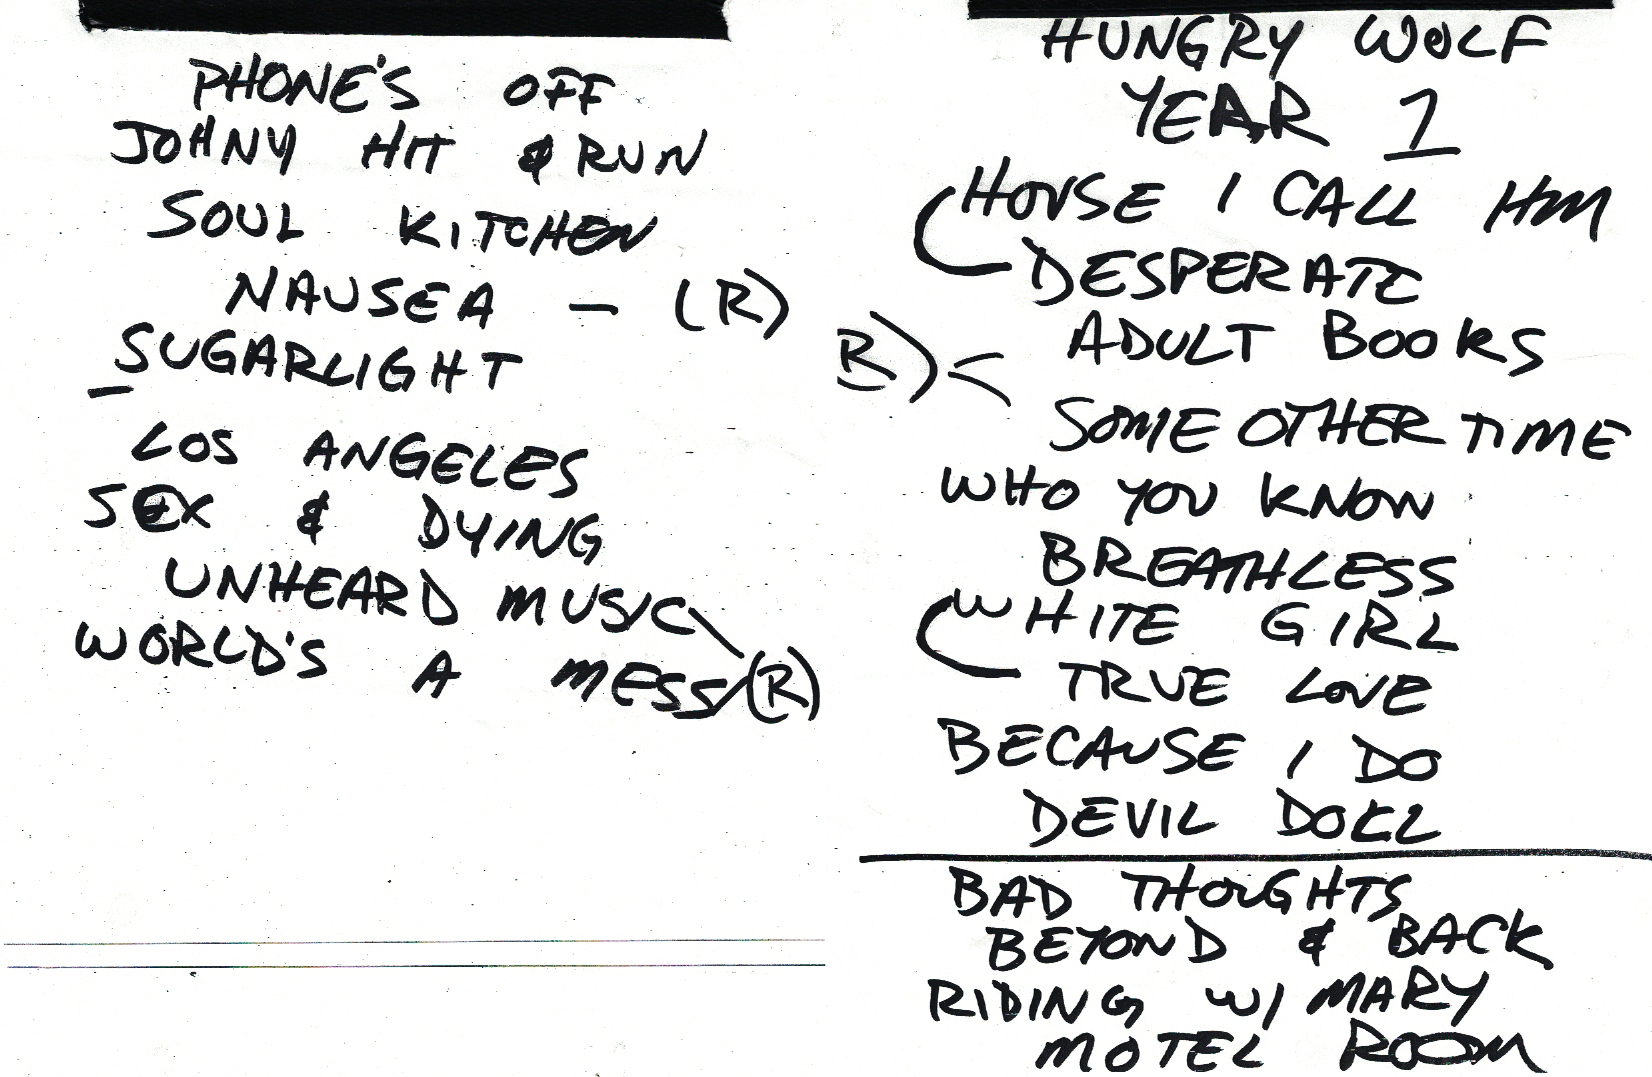 PHONE'S OFF
JOHNY HIT & RUN
SOUL KITCHEN
NAUSEA — (R)
SUGARLIGHT
LOS ANGELES
SEX & DYING
UNHEARD MUSIC
WORLD'S A MESS (R)
HUNGRY WOLF
YEAR 1
HOUSE I CALL HM
DESPERATE
R) ADULT BOOKS
SOME OTHER TIME
WHO YOU KNOW
BREATHLESS
WHITE GIRL
TRUE LOVE
BECAUSE I DO
DEVIL DOLL
BAD THOUGHTS
BEYOND & BACK
RIDING W/ MARY
MOTEL ROOM